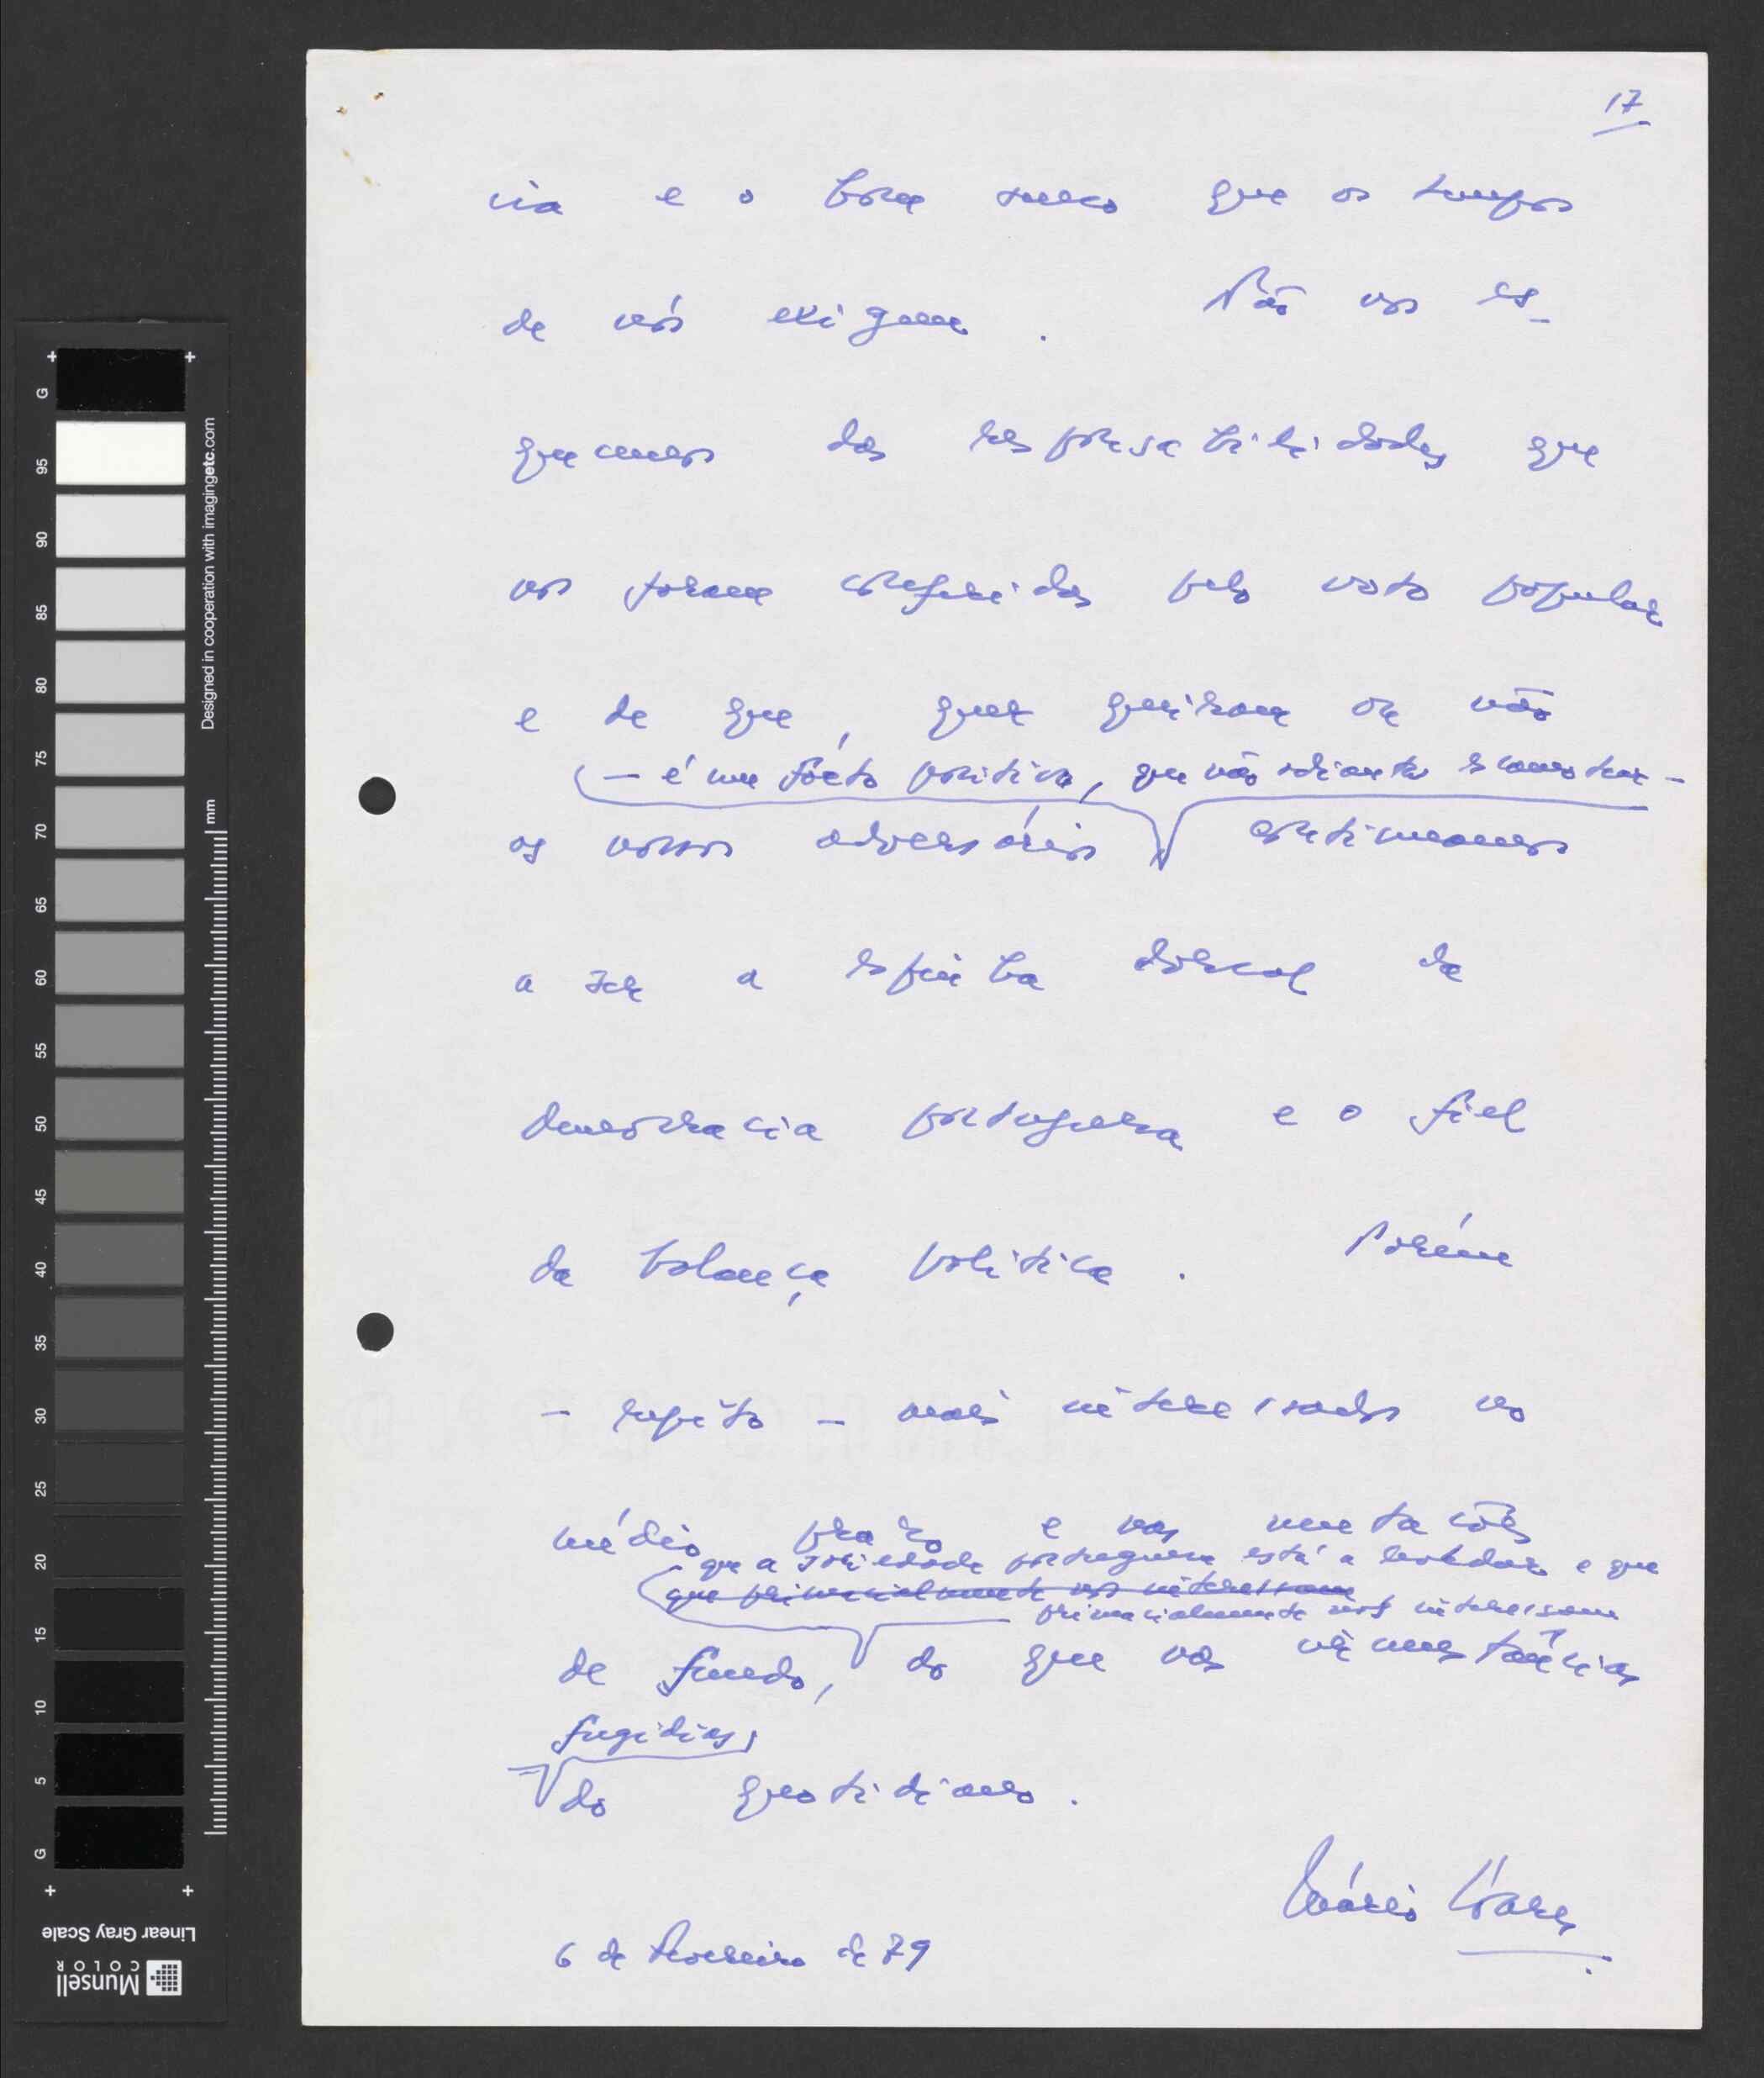 17
cia e o bom senso que os tempos
de nós exigem. Não nos es-
quecemos das responsabilidades que
nos foram conferidas pelo voto popular
e de que, quer queiram ou não
— é um facto político, que não adianta escamotear —
os nossos adversários continuamos
a ser a espinha dorsal da
democracia portuguesa e o fiel
da balança política. Porém
- repito - mais interessados no
médio prazo e nas mutações
que a sociedade portuguesa está a e que
que primacialmente nos interessam
primacialmente nos interessam
de fundo, do que nas circunstâncias
fugidias,
do quotidiano.
Mário Soares
6 de Fevereiro de 79
G 95 90 85 80 75 70 65 60 55 50 45 40 35 30 25 20 15 10 5 G
Designed in cooperation with imagingetc.com
mm
Linear Gray Scale
Munsell
COLOR